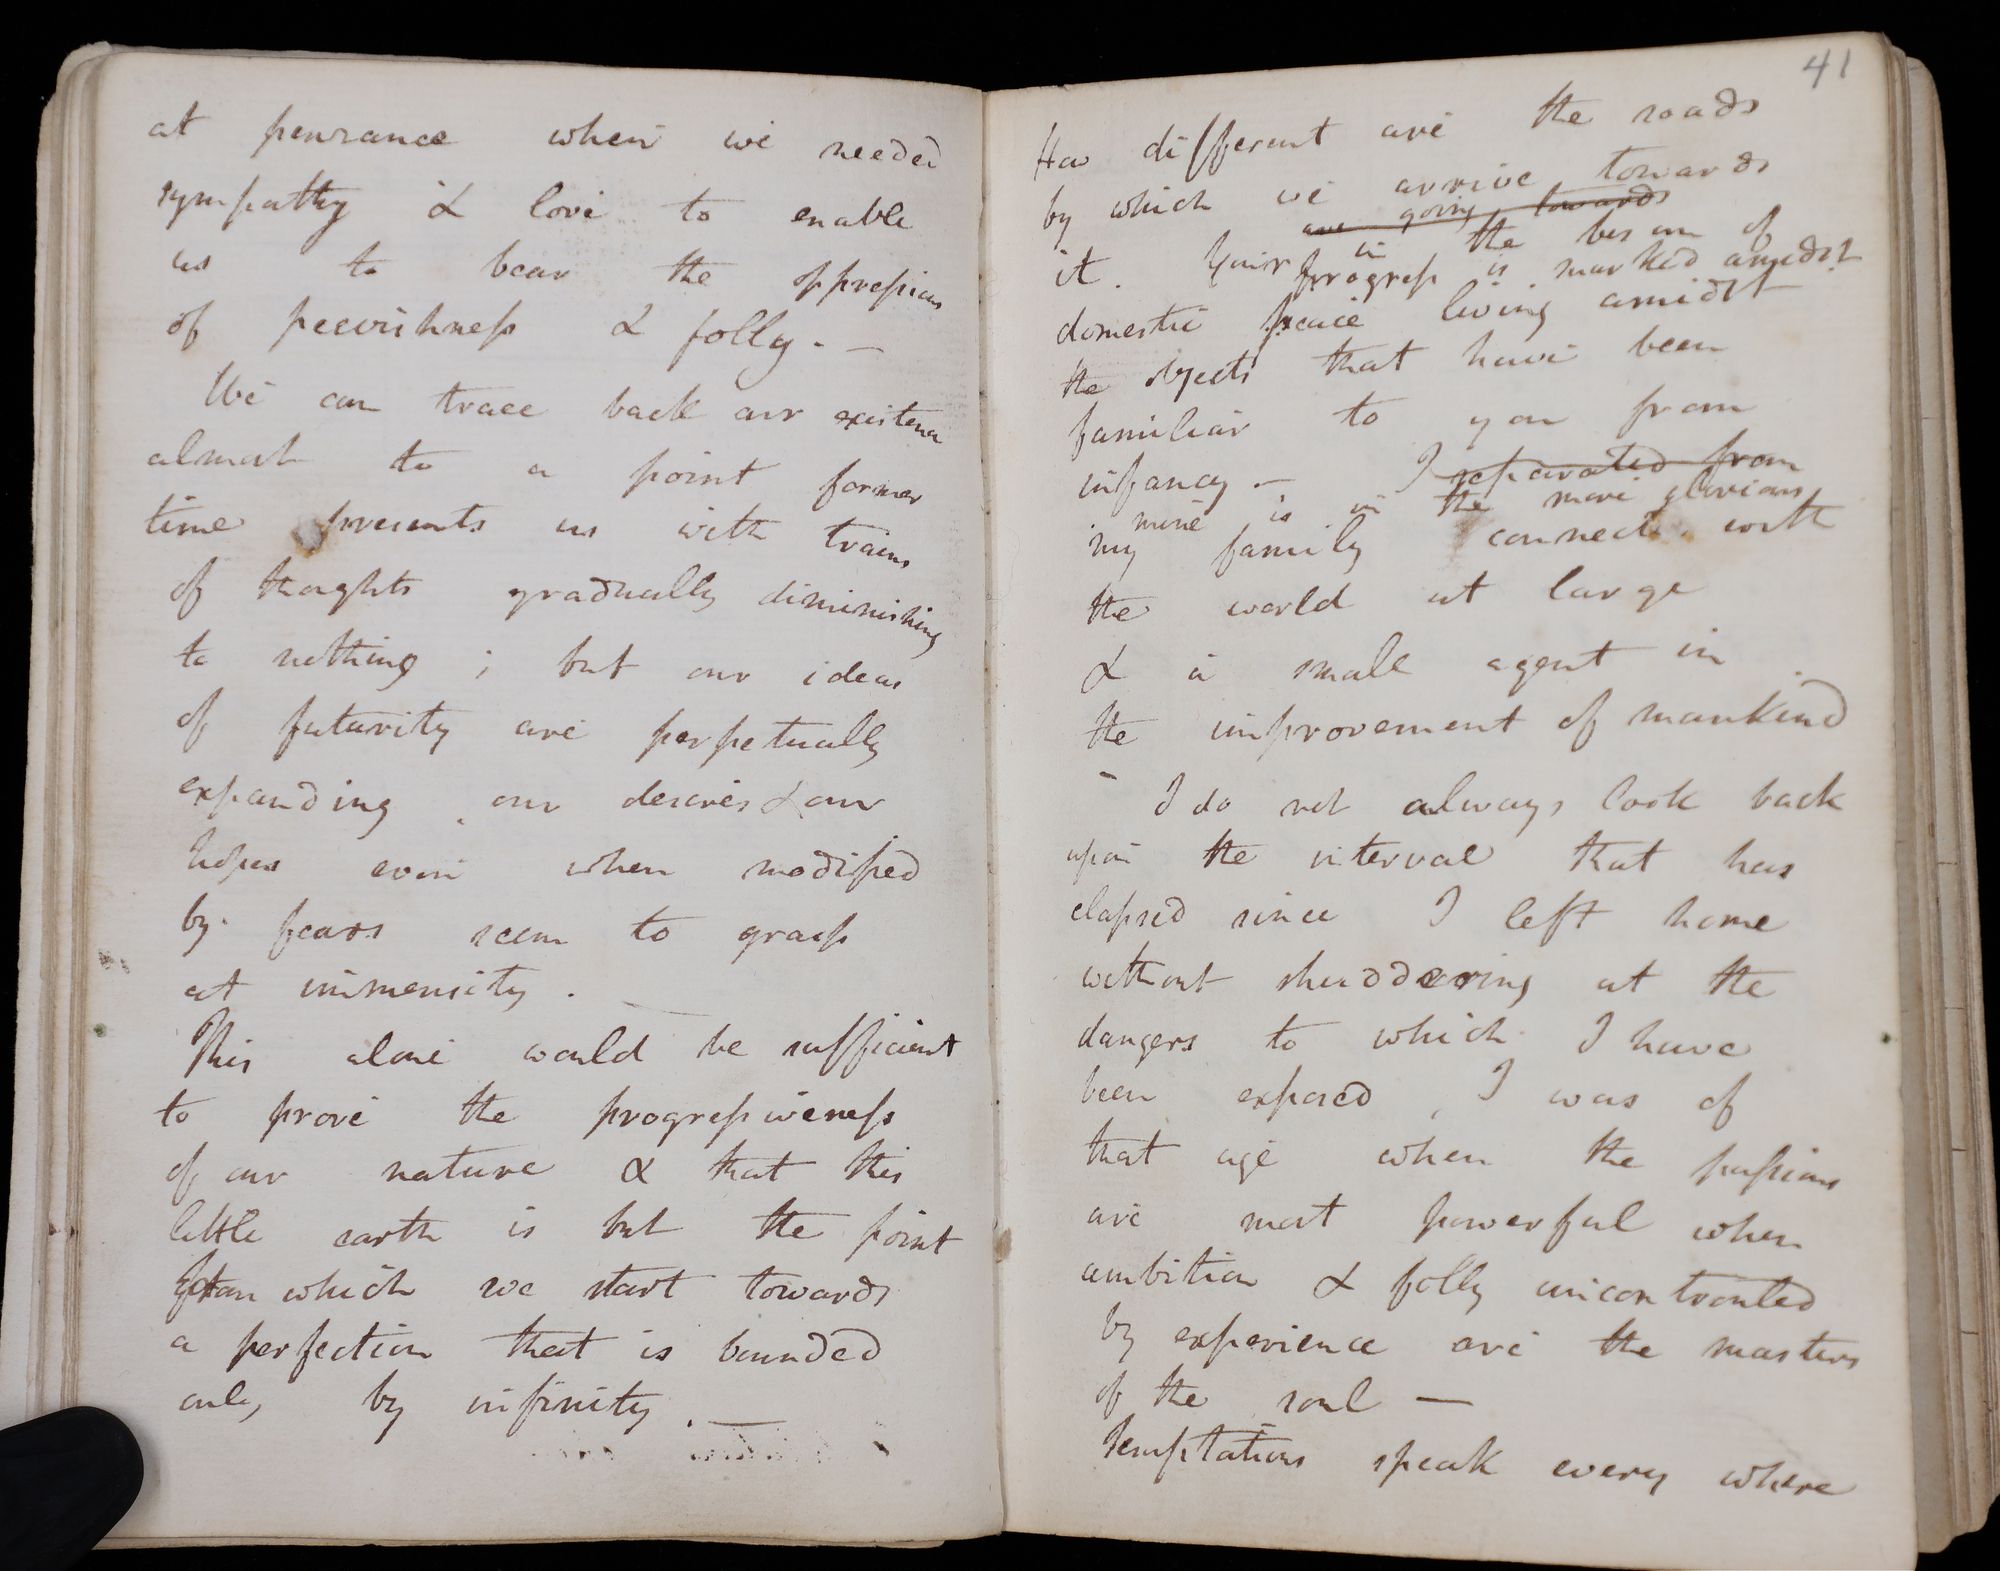 at penzance when we needed
sympathy & love to enable
us to bear the oppressions
of peevishness & folly. —
We can trace back our existence
almost to a point former
time presents us with trains
of thoughts gradually diminishing
to nothing; but our ideas
of futurity are perpetually
expanding. our desires & our
hopes even when modified
by fears seem to grasp
at immensity. —
This alone would be sufficient
to prove the progressiveness
of our nature & that this
little earth is but the point
from which we start towards
a perfection that is bounded
only by infinity. —
41
How different are the roads
by which we arrive towards
are going towards
it. Your in the bosom of
progress is marked amidst
domestic peace living amidst
the objects that have been
familiar to you from
infancy — I separated from
mine is in the more glorious
my family connect with
the world at large
& a small agent in
the improvement of mankind
— I do not always look back
upon the interval that has
elapsed since I left home
without shuddering at the
dangers to which I have
been exposed, I was of
that age when the passions
are most powerful when
ambition & folly uncontrouled
by experience are the masters
of the soul —
Temptations speak every where